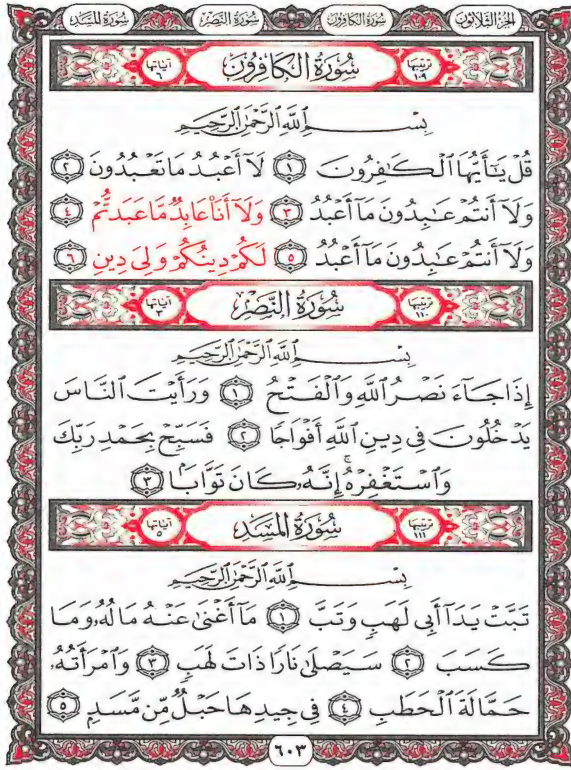 الجُزءُ الثَّلَاثُونَ سُورَةُ الكَافِرُونَ سُورَةُ النَّصْرِ سُورَةُ المَسَدِ
تَرتيبُها ١٠٩ سُورَةُ الكَافِرُونَ آيَاتُها ٦
بِسْمِ ٱللَّهِ ٱلرَّحْمَٰنِ ٱلرَّحِيمِ
قُلْ يَٰٓأَيُّهَا ٱلْكَٰفِرُونَ ١ لَآ أَعْبُدُ مَا تَعْبُدُونَ ٢
وَلَآ أَنتُمْ عَٰبِدُونَ مَآ أَعْبُدُ ٣ وَلَآ أَنَا۠ عَابِدٌ مَّا عَبَدتُّمْ ٤
وَلَآ أَنتُمْ عَٰبِدُونَ مَآ أَعْبُدُ ٥ لَكُمْ دِينُكُمْ وَلِىَ دِينِ ٦
تَرتيبُها ١١٠ سُورَةُ النَّصْرِ آيَاتُها ٣
بِسْمِ ٱللَّهِ ٱلرَّحْمَٰنِ ٱلرَّحِيمِ
إِذَا جَآءَ نَصْرُ ٱللَّهِ وَٱلْفَتْحُ ١ وَرَأَيْتَ ٱلنَّاسَ
يَدْخُلُونَ فِى دِينِ ٱللَّهِ أَفْوَاجًا ٢ فَسَبِّحْ بِحَمْدِ رَبِّكَ
وَٱسْتَغْفِرْهُ ۚ إِنَّهُۥ كَانَ تَوَّابًۢا ٣
تَرتيبُها ١١١ سُورَةُ المَسَدِ آيَاتُها ٥
بِسْمِ ٱللَّهِ ٱلرَّحْمَٰنِ ٱلرَّحِيمِ
تَبَّتْ يَدَآ أَبِى لَهَبٍ وَتَبَّ ١ مَآ أَغْنَىٰ عَنْهُ مَالُهُۥ وَمَا
كَسَبَ ٢ سَيَصْلَىٰ نَارًا ذَاتَ لَهَبٍ ٣ وَٱمْرَأَتُهُۥ
حَمَّالَةَ ٱلْحَطَبِ ٤ فِى جِيدِهَا حَبْلٌ مِّن مَّسَدٍۭ ٥
٦٠٣